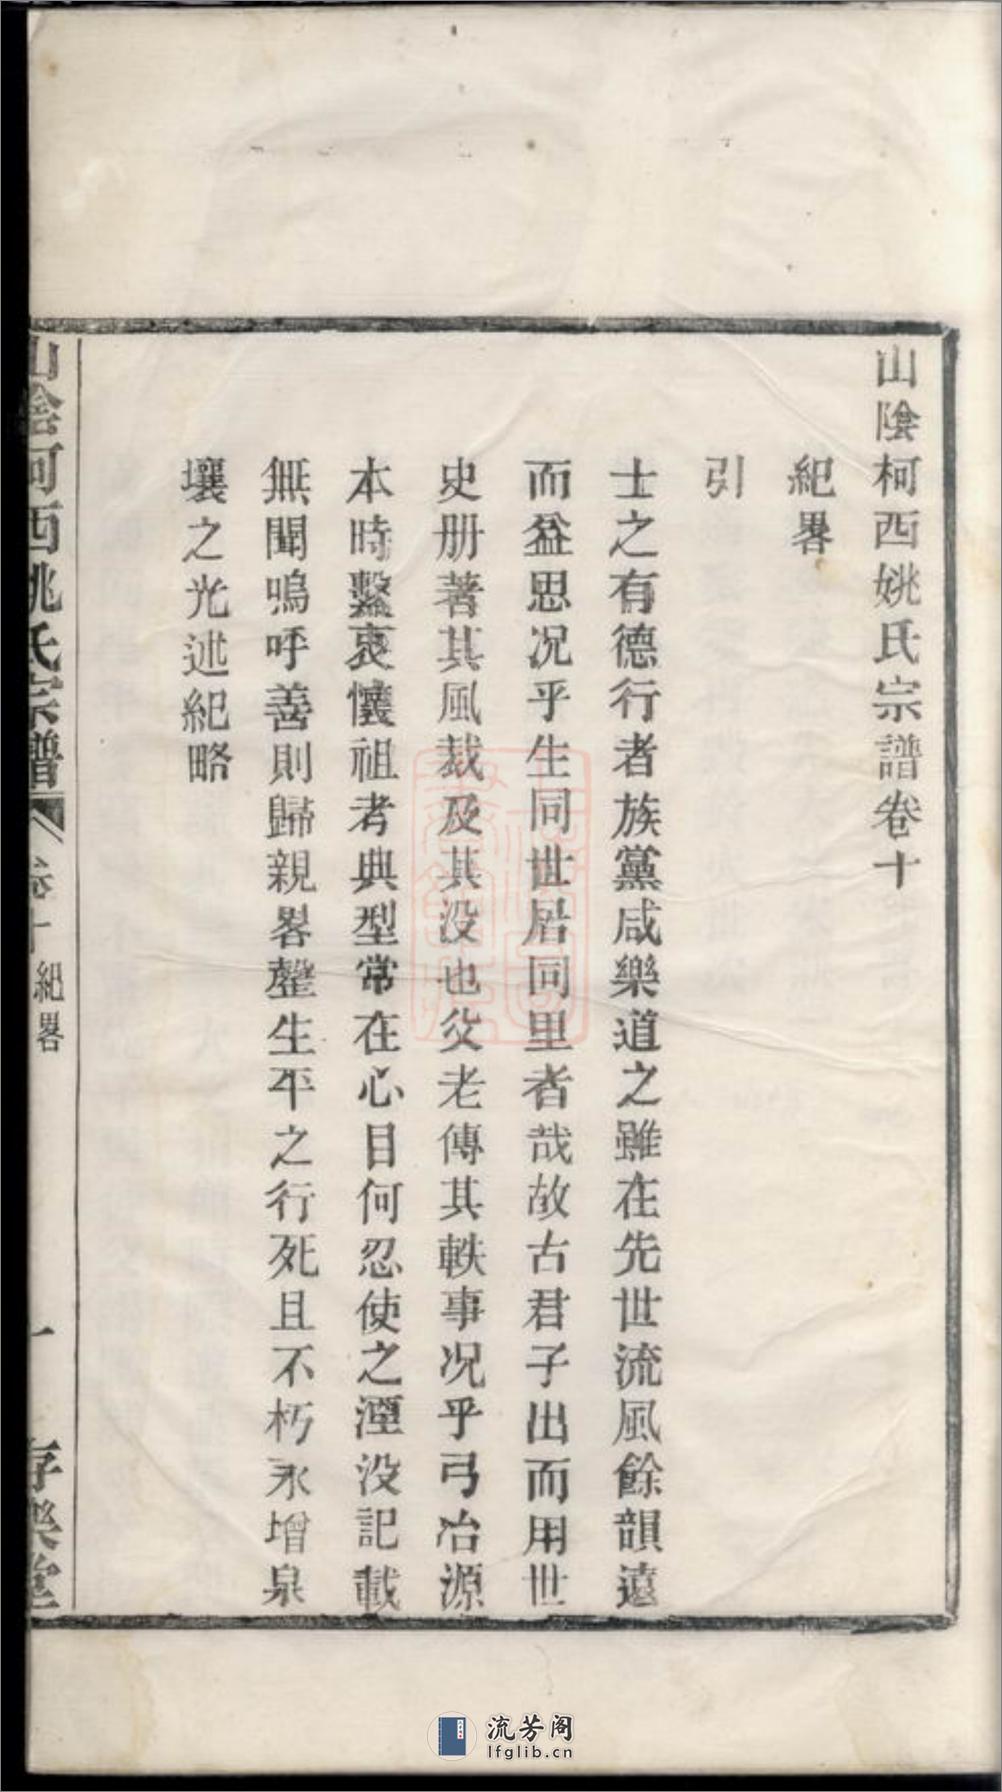 山陰柯西姚氏宗譜卷十
紀畧
引
士之有德行者族黨咸樂道之雖在先世流風餘韻遠
而益思况乎生同世居同里者哉故古君子出而用世
史册著其風裁及其没也父老傳其軼事况乎弓冶源
本時繫衷懷祖考典型常在心目何忍使之湮没記載
無聞嗚呼善則歸親畧罄生平之行死且不朽永增泉
壤之光述紀略
山陰柯西姚氏宗譜
卷十
紀畧
一
存樂堂
流芳阁
lfglib.cn